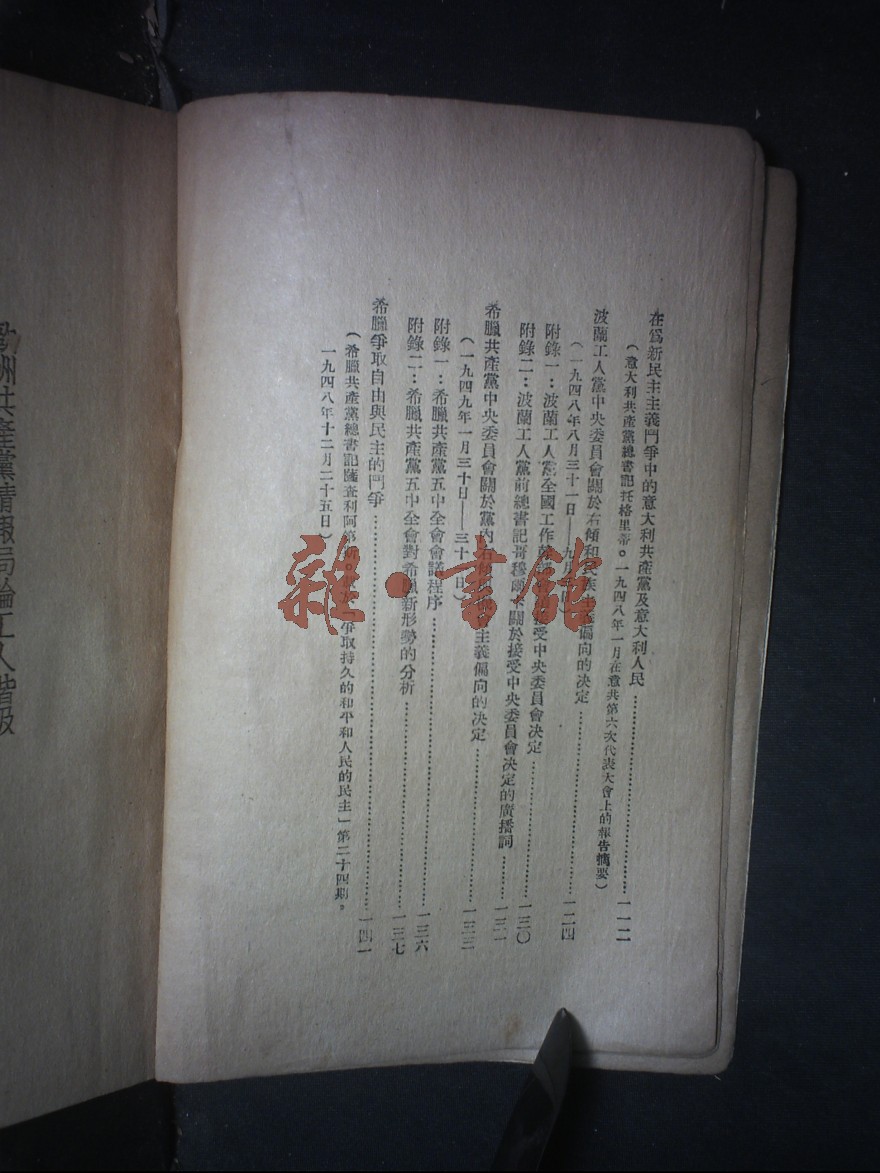 在爲新民主主義鬥爭中的意大利共產黨及意大利人民……一一二
（意大利共產黨總書記托格里蒂。一九四八年一月在意共第六次代表大會上的報告摘要）
波蘭工人黨中央委員會關於右傾和民族主義偏向的決定……一二四
（一九四八年八月三十一日——九月
附錄一：波蘭工人黨全國工作 接受中央委員會決定……一三〇
附錄二：波蘭工人黨前總書記哥穆爾卡關於接受中央委員會決定的廣播詞……一三一
希臘共產黨中央委員會關於黨內右傾 主義偏向的決定……一三三
（一九四九年一月三十日——三十一日）
附錄一：希臘共產黨五中全會會議程序……一三六
附錄二：希臘共產黨五中全會對希臘新形勢的分析……一三七
希臘爭取自由與民主的鬥爭……一四一
（希臘共產黨總書記薩查利阿第斯。 「爭取持久的和平和人民的民主」第二十四期。
一九四八年十二月二十五日）
歐洲共產黨情報局論工人階級
雜·書館